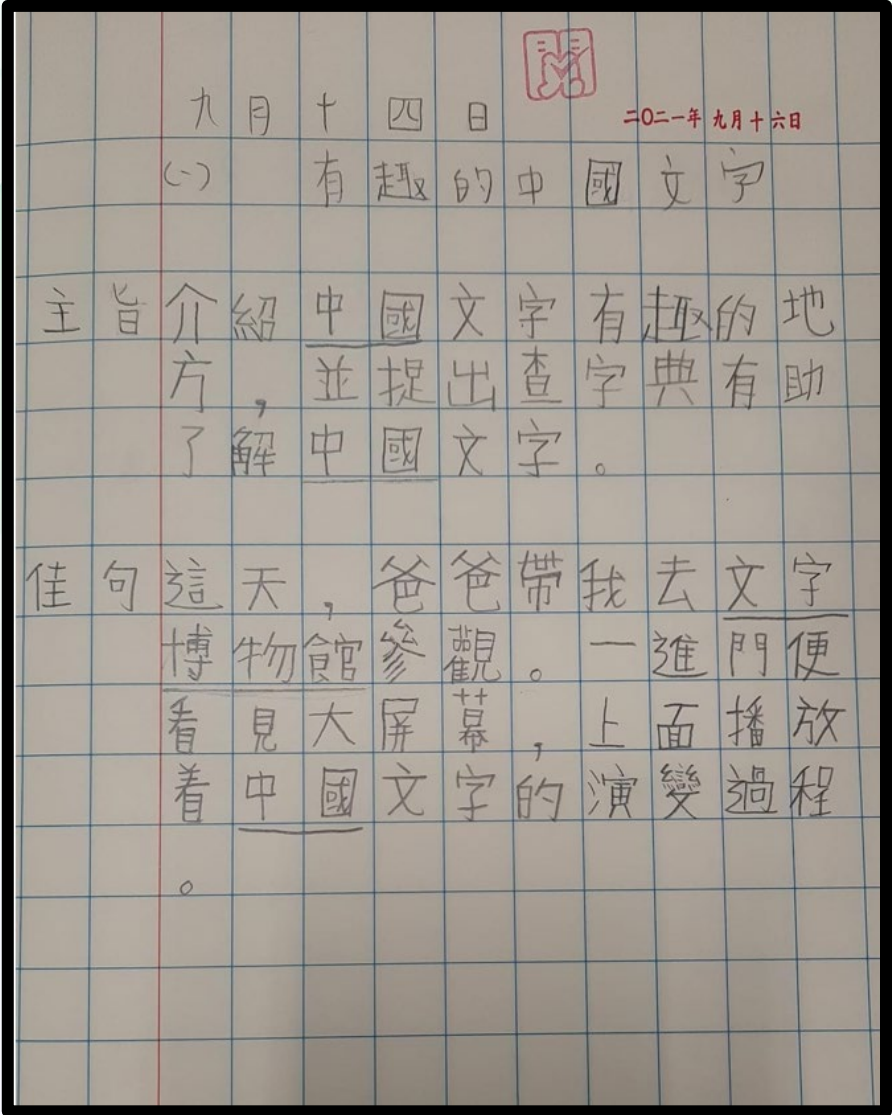 九月十四日
二〇二一年 九月十六日
(一) 有趣的中國文字
主旨介紹中國文字有趣的地
方，並提出查字典有助
了解中國文字。
佳句這天，爸爸帶我去文字
博物館參觀。一進門便
看見大屏幕，上面播放
着中國文字的演變過程
。